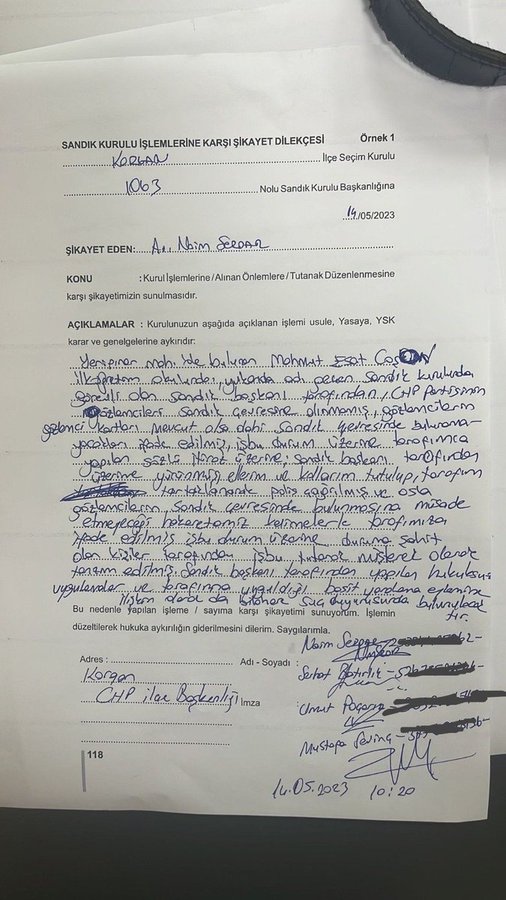 SANDIK KURULU İŞLEMLERİNE KARŞI ŞİKAYET DİLEKÇESİ Örnek 1
KORGAN İlçe Seçim Kurulu
1063 Nolu Sandık Kurulu Başkanlığına
14/05/2023
ŞİKAYET EDEN: Av. Naim SERDAR
KONU : Kurul İşlemlerine / Alınan Önlemlere / Tutanak Düzenlenmesine
karşı şikayetimizin sunulmasıdır.
AÇIKLAMALAR : Kurulunuzun aşağıda açıklanan işlemi usule, Yasaya, YSK
karar ve genelgelerine aykırıdır:
Yeşilpınar mah.'de bulunan Mahmut Esat
ilköğretim okulunda, yukarıda adı geçen sandık kurulunda
görevli olan sandık başkanı tarafından, CHP Partisinin
gözlemcileri sandık çevresine alınmamış, gözlemcilerin
gözlemci kartları mevcut olsa dahi sandık çevresinde buluna
yacakları ifade edilmiş, işbu durum üzerine tarafımca
yapılan sözlü itiraz üzerine; sandık başkanı tarafından
üzerime yürünmüş ellerim ve kollarım tutulup, tarafım
tartaklanarak polis çağrılmış ve asla
gözlemcilerin sandık çevresinde bulunmasına müsade
etmeyeceği hakaretamiz kelimelerle tarafımıza
ifade edilmiş işbu durum üzerine duruma şahit
olan kişiler tarafından işbu tutanak müşterek olarak
tanzim edilmiş. Sandık başkanı tarafından yapılan hukuksuz
uygulamalar ve tarafıma uyguladığı basit yaralama eylemine
ilişkin olarak da bilahare suç duyurusunda bulunulacak
tır.
Bu nedenle yapılan işleme / sayıma karşı şikayetimi sunuyorum. İşlemin
düzeltilerek hukuka aykırılığın giderilmesini dilerim. Saygılarımla.
Naim
Adres : Adı - Soyadı :
Serhat
Korgan
CHP ilçe Başkanlığı İmza :
Umut
Mustafa Sevinç
118
14.05.2023 10:20